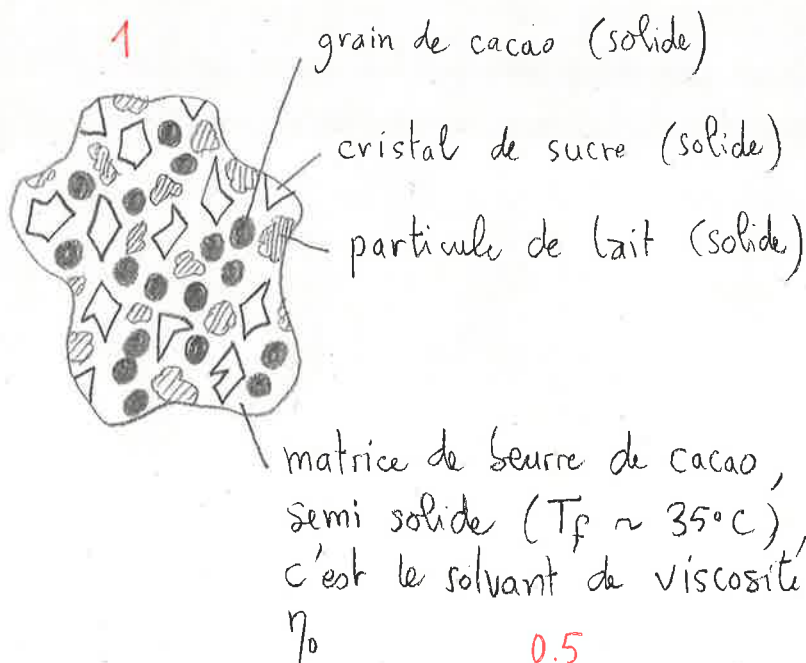 1
grain de cacao (solide)
cristal de sucre (solide)
particule de lait (solide)
matrice de beurre de cacao,
semi solide (Tf ~ 35°C),
c'est le solvant de viscosité
η0
0.5